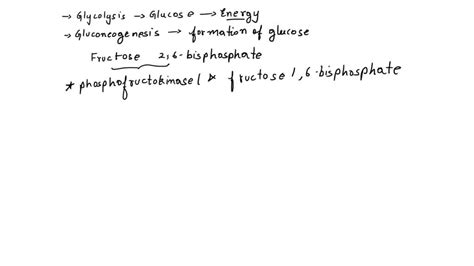 → Glycolysis → Glucose → Energy
→ Gluconeogenesis → formation of glucose
Fructose 2,6-bisphosphate
* phosphofructokinase 1 * fructose 1,6-bisphosphate